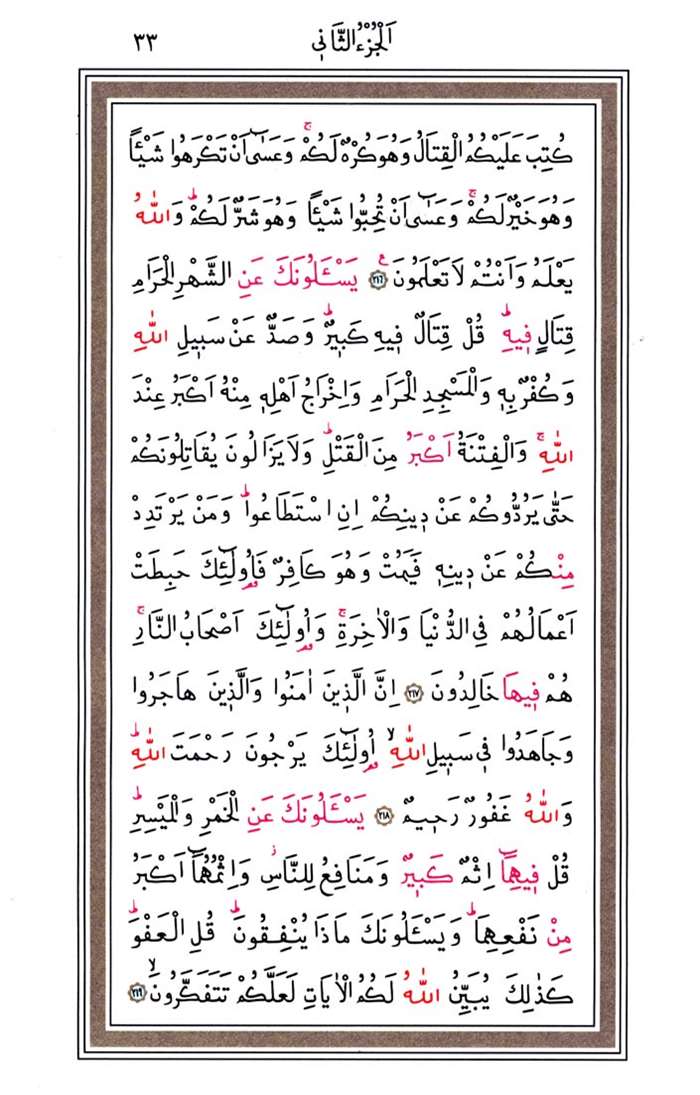 اَلْجُزْءُ الثَّانٖي ٣٣
كُتِبَ عَلَيْكُمُ الْقِتَالُ وَهُوَ كُرْهٌ لَكُمْۚ وَعَسٰٓى اَنْ تَكْرَهُوا شَيْـًٔا
وَهُوَ خَيْرٌ لَكُمْۚ وَعَسٰٓى اَنْ تُحِبُّوا شَيْـًٔا وَهُوَ شَرٌّ لَكُمْؕ وَاللّٰهُ
يَعْلَمُ وَاَنْتُمْ لَا تَعْلَمُونَࣖ ﴿٢١٦﴾ يَسْـَٔلُونَكَ عَنِ الشَّهْرِ الْحَرَامِ
قِتَالٍ فٖيهِؕ قُلْ قِتَالٌ فٖيهِ كَبٖيرٌؕ وَصَدٌّ عَنْ سَبٖيلِ اللّٰهِ
وَكُفْرٌ بِهٖ وَالْمَسْجِدِ الْحَرَامِ وَاِخْرَاجُ اَهْلِهٖ مِنْهُ اَكْبَرُ عِنْدَ
اللّٰهِۚ وَالْفِتْنَةُ اَكْبَرُ مِنَ الْقَتْلِؕ وَلَا يَزَالُونَ يُقَاتِلُونَكُمْ
حَتّٰى يَرُدُّوكُمْ عَنْ دٖينِكُمْ اِنِ اسْتَطَاعُواؕ وَمَنْ يَرْتَدِدْ
مِنْكُمْ عَنْ دٖينِهٖ فَيَمُتْ وَهُوَ كَافِرٌ فَاُو۬لٰٓئِكَ حَبِطَتْ
اَعْمَالُهُمْ فِي الدُّنْيَا وَالْاٰخِرَةِۚ وَاُو۬لٰٓئِكَ اَصْحَابُ النَّارِۚ
هُمْ فٖيهَا خَالِدُونَ ﴿٢١٧﴾ اِنَّ الَّذٖينَ اٰمَنُوا وَالَّذٖينَ هَاجَرُوا
وَجَاهَدُوا فٖي سَبٖيلِ اللّٰهِۙ اُو۬لٰٓئِكَ يَرْجُونَ رَحْمَتَ اللّٰهِؕ
وَاللّٰهُ غَفُورٌ رَحٖيمٌ ﴿٢١٨﴾ يَسْـَٔلُونَكَ عَنِ الْخَمْرِ وَالْمَيْسِرِؕ
قُلْ فٖيهِمَٓا اِثْمٌ كَبٖيرٌ وَمَنَافِعُ لِلنَّاسِؗ وَاِثْمُهُمَٓا اَكْبَرُ
مِنْ نَفْعِهِمَاؕ وَيَسْـَٔلُونَكَ مَاذَا يُنْفِقُونَؕ قُلِ الْعَفْوَؕ
كَذٰلِكَ يُبَيِّنُ اللّٰهُ لَكُمُ الْاٰيَاتِ لَعَلَّكُمْ تَتَفَكَّرُونَۙ ﴿٢١٩﴾